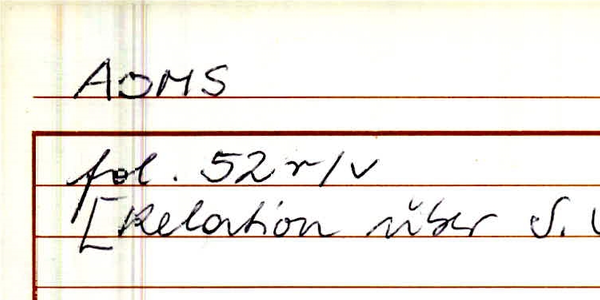 AOMS
fol. 52 r/v
[Relation über S.